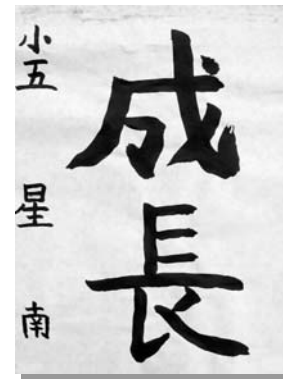 成長
小五 星 南